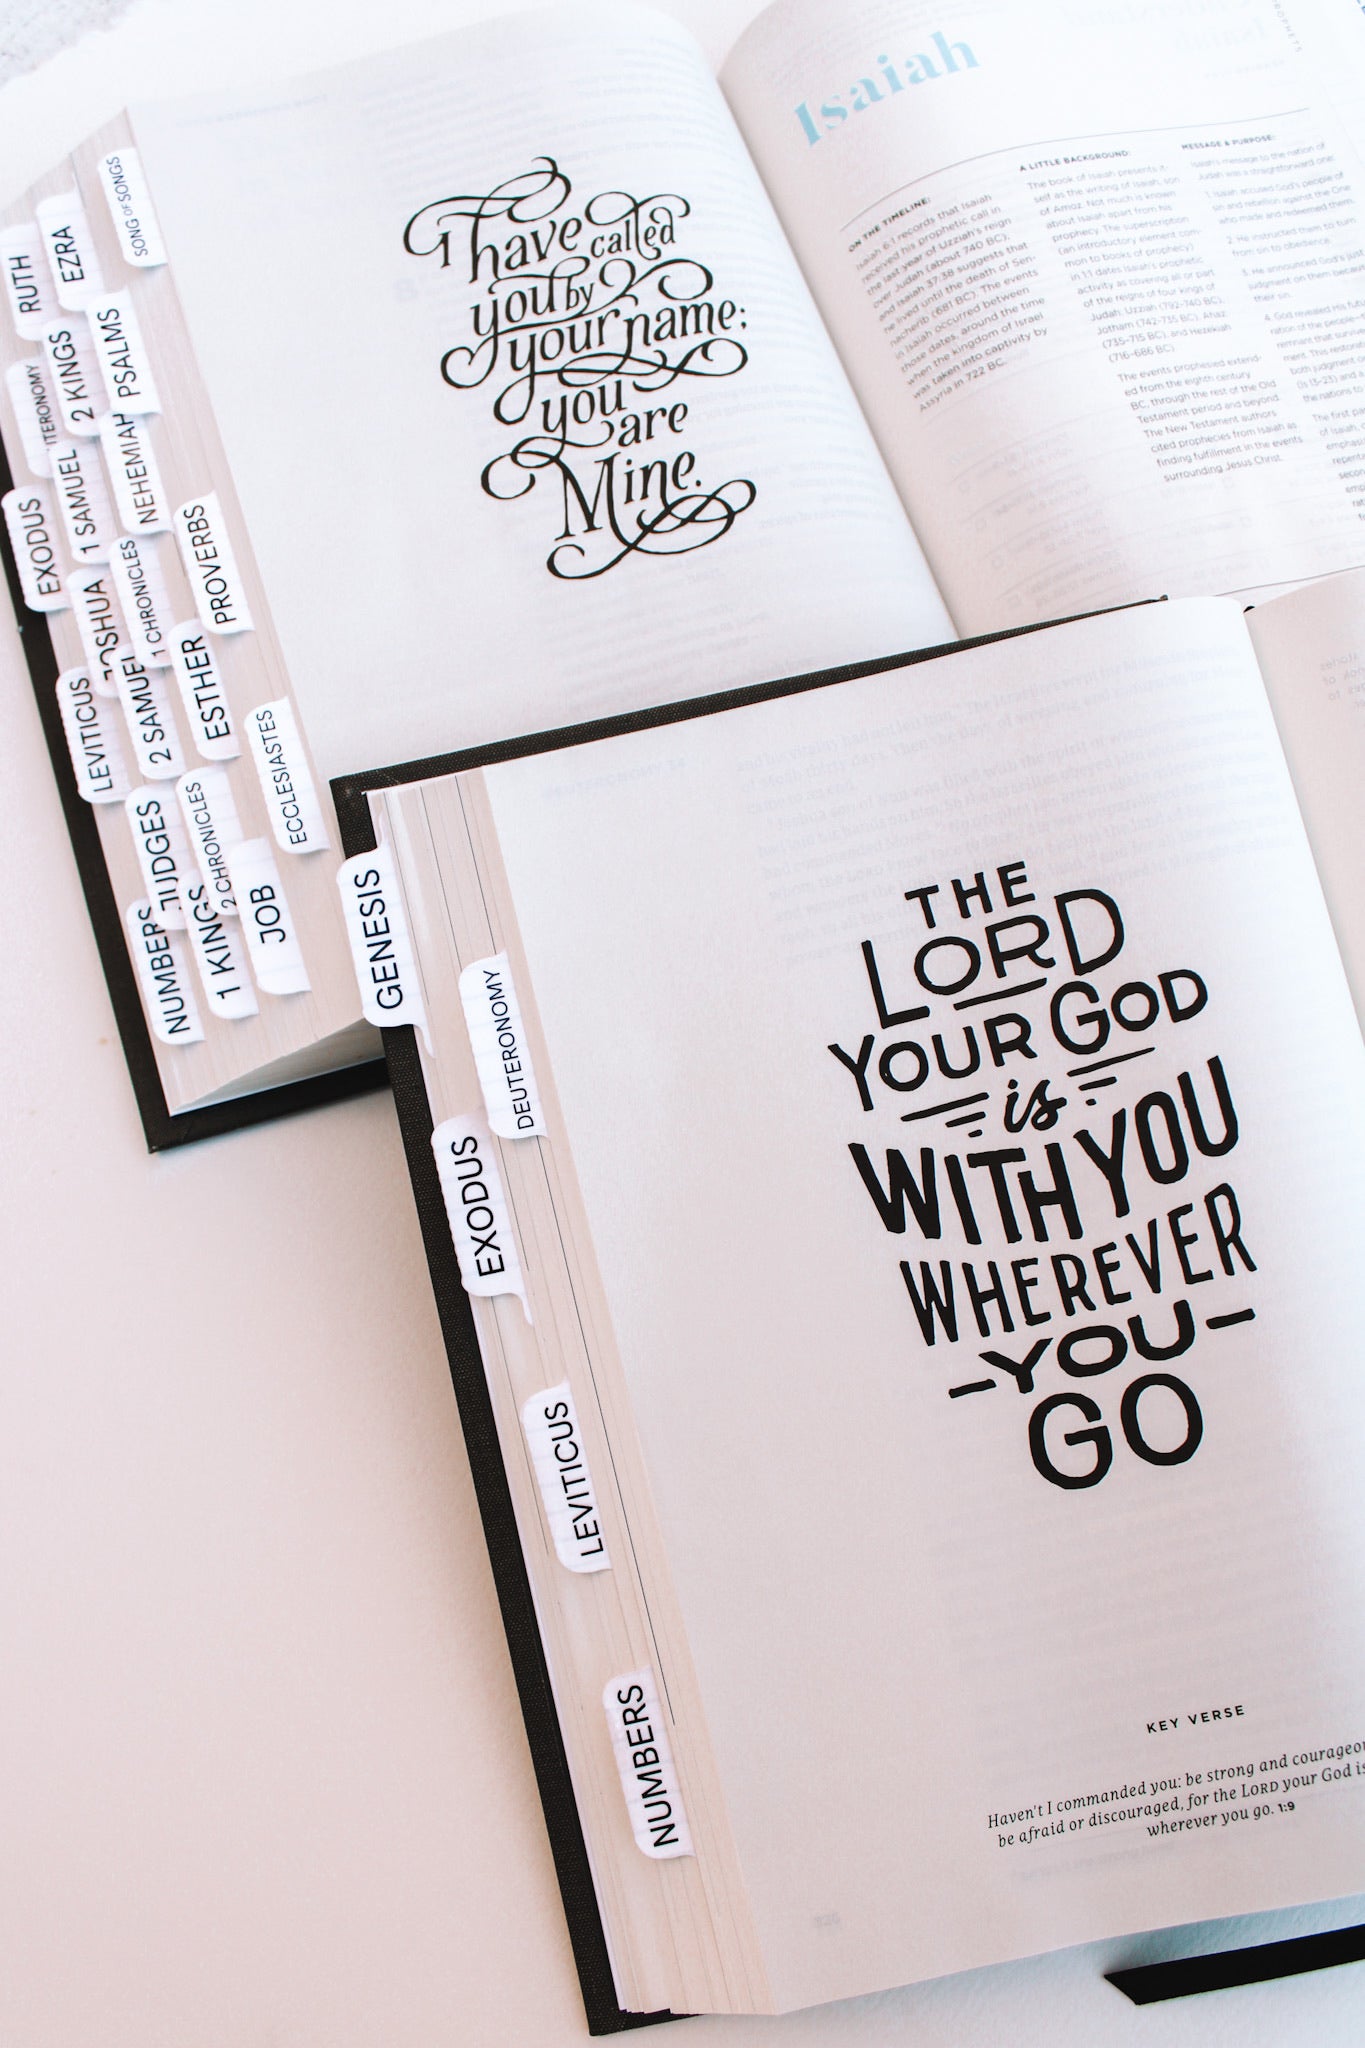 SONG OF SONGS
EZRA
RUTH
PSALMS
2 KINGS
NEHEMIAH
1 SAMUEL
EXODUS
PROVERBS
1 CHRONICLES
JOSHUA
ESTHER
2 SAMUEL
LEVITICUS
ECCLESIASTES
2 CHRONICLES
JUDGES
JOB
1 KINGS
NUMBERS
I have called
you by
your name;
you
are
Mine.
Isaiah
ON THE TIMELINE:
Isaiah 6:1 records that Isaiah
received his prophetic call in
the last year of Uzziah's reign
over Judah (about 740 BC),
and Isaiah 37:38 suggests that
he lived until the death of Sen-
nacherib (681 BC). The events
in Isaiah occurred between
those dates, around the time
when the kingdom of Israel
was taken into captivity by
Assyria in 722 BC.
A LITTLE BACKGROUND:
The book of Isaiah presents it-
self as the writing of Isaiah, son
of Amoz. Not much is known
about Isaiah apart from his
prophecy. The superscription
(an introductory element com-
mon to books of prophecy)
in 1:1 dates Isaiah's prophetic
activity as covering all or part
of the reigns of four kings of
Judah: Uzziah (792-740 BC),
Jotham (742-735 BC), Ahaz
(735-715 BC), and Hezekiah
(716-686 BC).
The events prophesied extend-
ed from the eighth century
BC, through the rest of the Old
Testament period and beyond.
The New Testament authors
cited prophecies from Isaiah as
finding fulfillment in the events
surrounding Jesus Christ.
MESSAGE & PURPOSE:
Isaiah's message to the nation of
Judah was a straightforward one:
1. Isaiah accused God's people of
sin and rebellion against the One
who made and redeemed them.
2. He instructed them to turn
from sin to obedience.
3. He announced God's just
judgment on them because
their sin.
4. God revealed His
of the people
The first
of Isaiah,
GENESIS
DEUTERONOMY
EXODUS
LEVITICUS
NUMBERS
THE
LORD
YOUR GOD
is
WITH YOU
WHEREVER
-YOU-
GO
KEY VERSE
Haven't I commanded you: be strong and
be afraid or discouraged, for the LORD your God is
wherever you go. 1:9